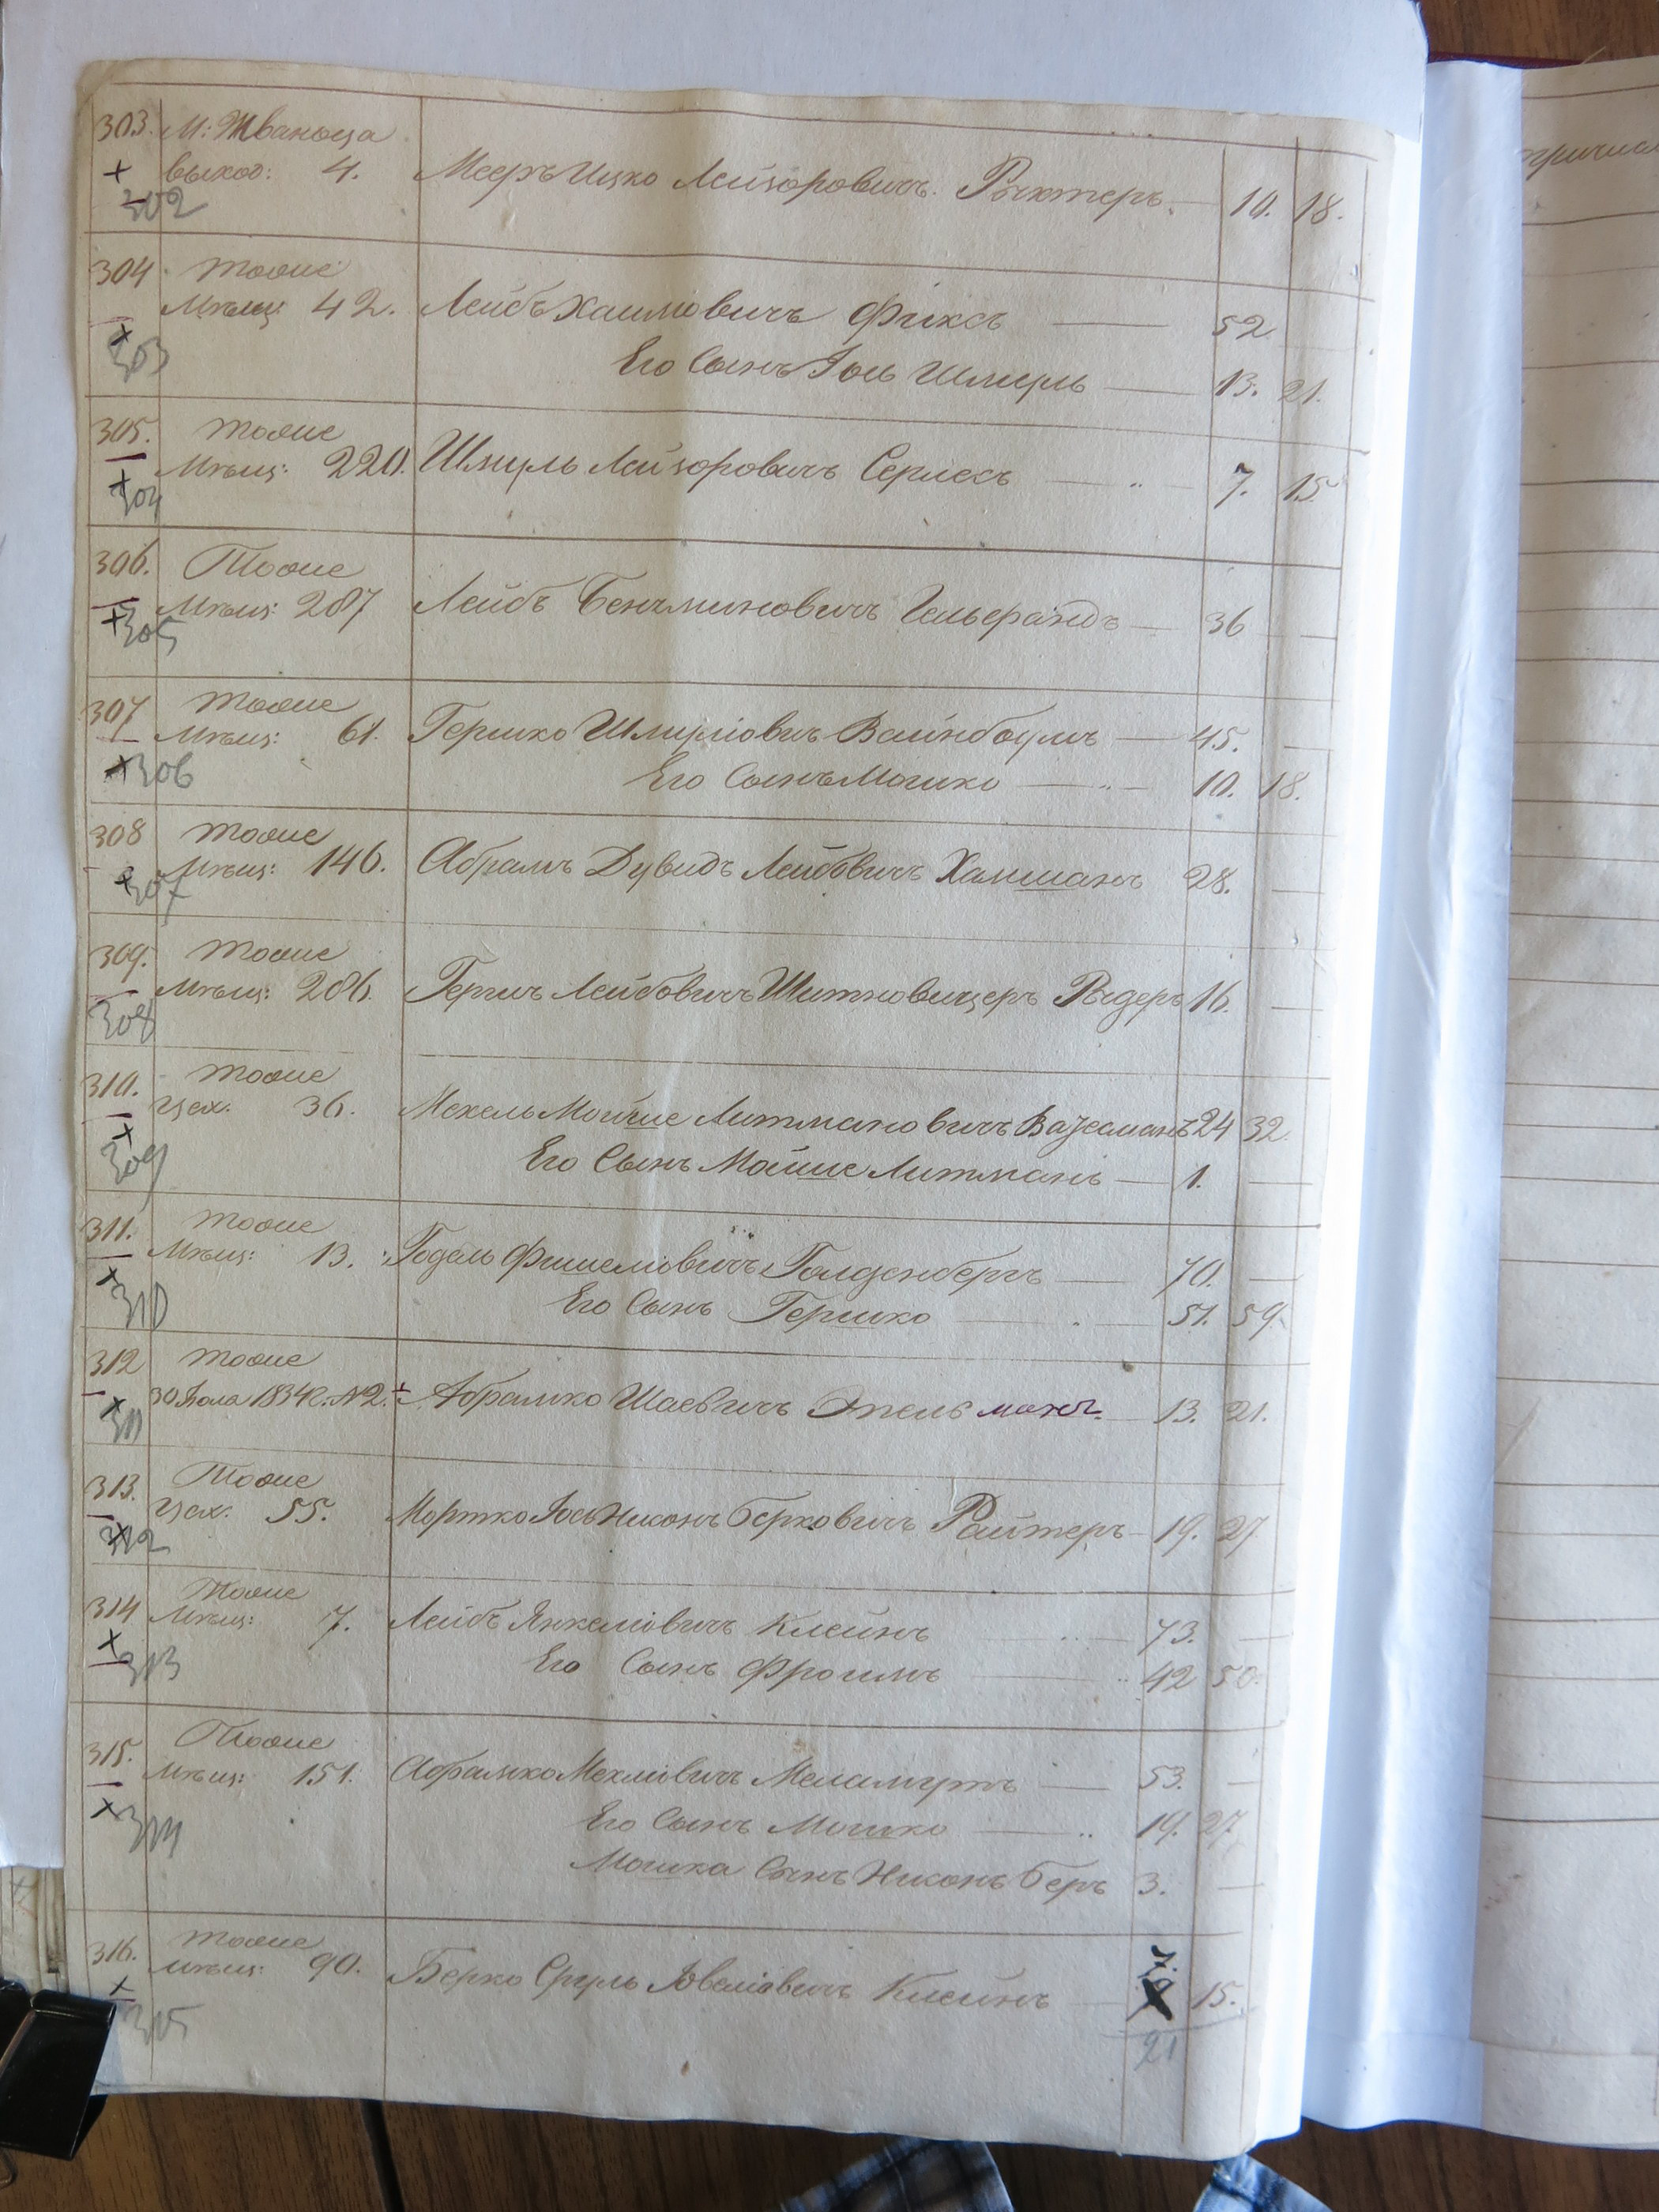 303. М: Жванеца
+ выход: 4. Меер Ицко Лейзоровичъ Рыхтеръ 10. 18.
302
304 тоже
Мѣщ: 42. Лейбъ Хаимовичъ Фиксъ 52
303 Его Сынъ Іось Шмуль 13. 21.
305. тоже
Мѣщ: 220. Шмуль Лейзоровичъ 7. 15
+ 304
306. Тоже
Мѣщ: 287 Лейбъ Бенъминовичъ 36
+ 305
307 тоже
Мѣщ: 61. Гершко Шмуліовичъ Вайнбоумъ 45.
+ 306 Его Сынъ Мошко 10. 18.
308 тоже
Мѣщ: 146. Абрамъ Дувидъ Лейбовичъ 28.
+ 307
309. тоже
Мѣщ: 286. Лейбовичъ 16.
308
310. тоже
Цех. 36. Мехель Мойше Литмановичъ Вазсманъ 24 32.
+ Его Сынъ Мойше Литманъ 1.
309
311. тоже
Мѣщ: 13. Годель Фишеліовичъ Голденбергъ 70.
+ 310 Его Сынъ Гершко 51. 59.
312 тоже
30 Іюля 1834 г. №2. + Абрамко Шаевичъ Эпельманъ 13. 21.
+ 311
313. Тоже
Цех. 55. Мортко Іось Нисонъ Берковичъ Райтеръ 19. 27
312
314 Тоже
Мѣщ: 7. Лейбъ Янкеліовичъ Клейнъ 73.
+ 313 Его Сынъ Фроимъ 42 50.
315. Тоже
Мѣщ: 151. Абрамко Мехліовичъ Меламутъ 53.
+ 314 Его Сынъ Мошко 19. 27.
Мошка Сынъ Нисонъ Беръ 3.
316. тоже
мѣщ: 90. Берко Сруль Іовеліовичъ Клейнъ 7. 15.
+ 315
21